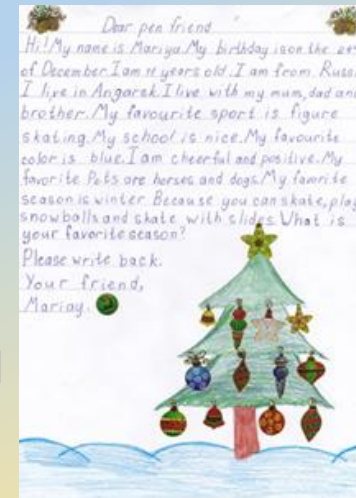 Dear pen friend
Hi! My name is Mariya. My birthday is on the 24
of December. I am 11 years old. I am from Russ
I live in Angarsk. I live with my mum, dad and
brother. My favourite sport is figure
skating. My school is nice. My favourite
color is blue. I am cheerful and positive. My
favorite Pets are horses and dogs. My favorite
season is winter. Because you can skate, play
snowballs and skate with slides. What is
your favorite season?
Please write back.
Your friend,
Mariay.